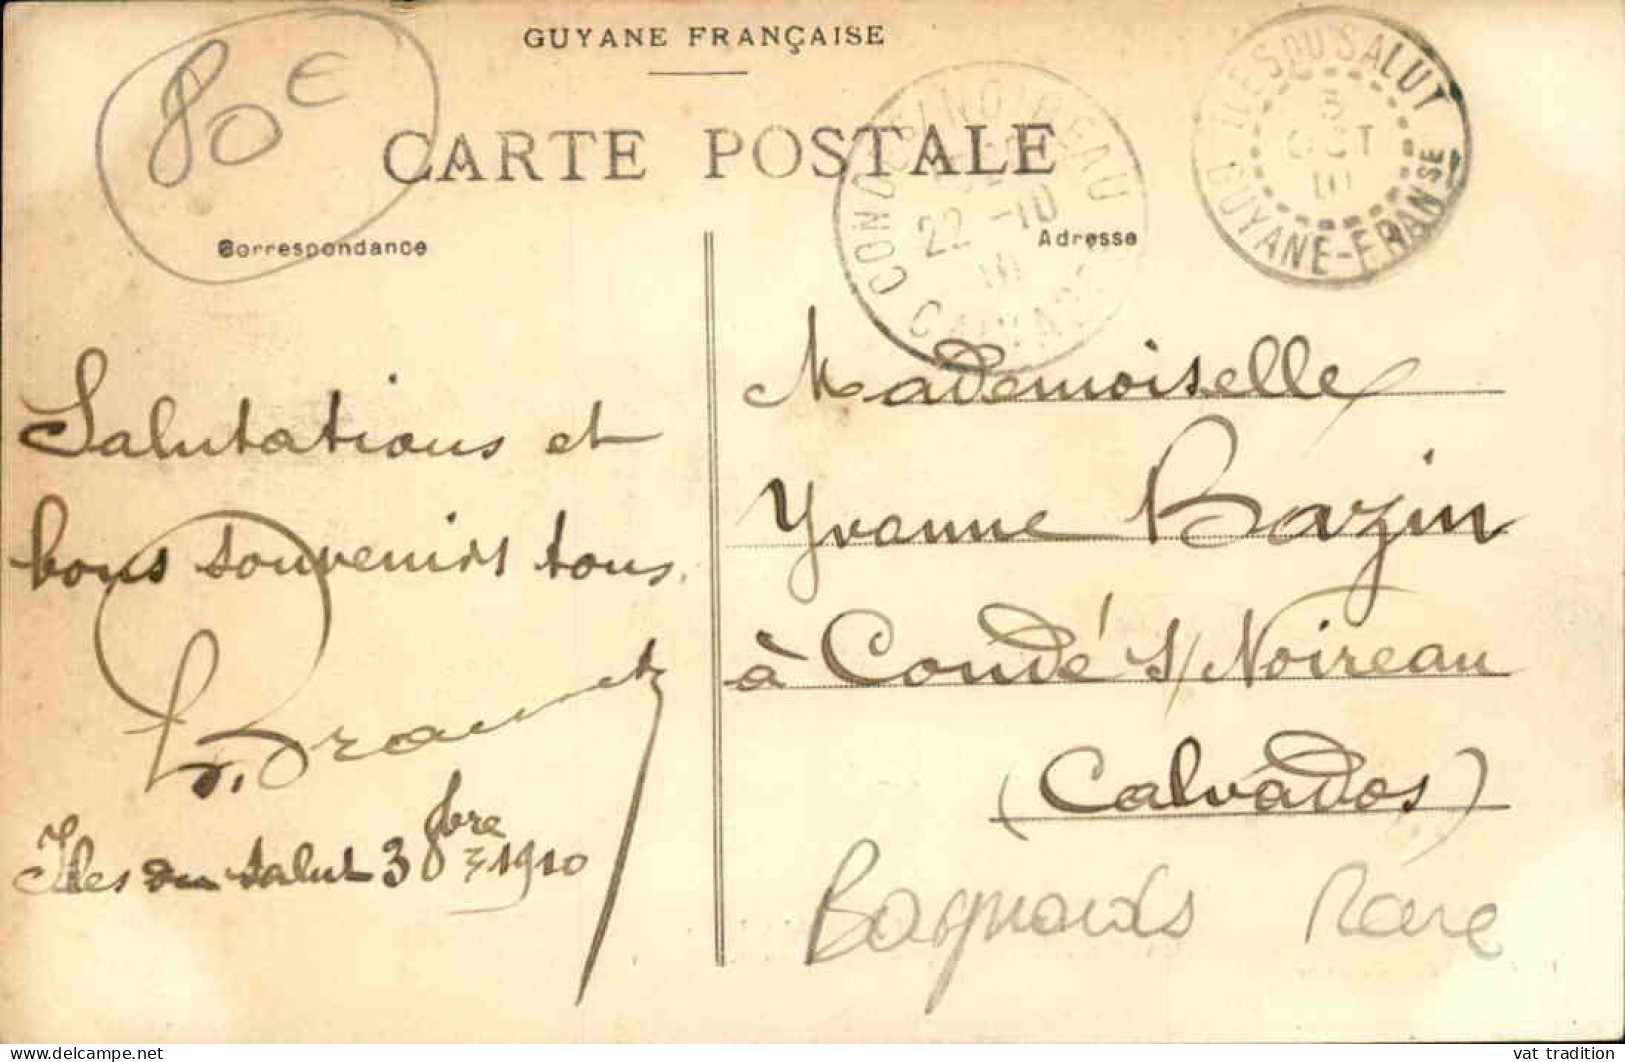 GUYANE FRANÇAISE
80€
CARTE POSTALE
ILES DU SALUT
3
OCT
10
GUYANE-FRANÇSE
CONDE S/ NOIREAU
22 -10
10
CALVADOS
Correspondance
Adresse
Salutations et
bons souvenirs tous.
Iles du Salut 3 8bre 1910
Mademoiselle
Yvonne Bazin
à Condé s/ Noireau
(Calvados)
Bagnards Rare
vat tradition